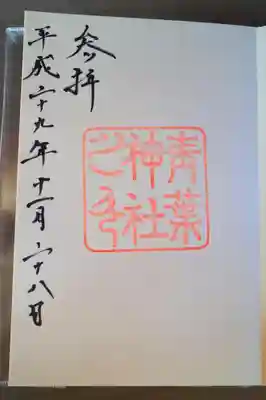 青葉
神社
之印
参拝
平成二十九年十一月二十八日